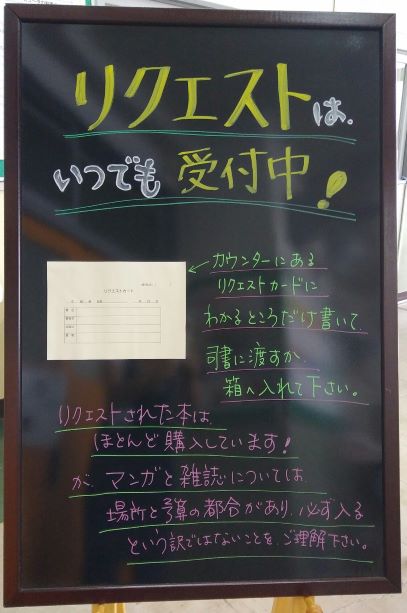 リクエストは、
いつでも受付中！
リクエストカード
カウンターにある
リクエストカードに
わかるところだけ書いて、
司書に渡すか、
箱へ入れて下さい。
リクエストされた本は、
ほとんど購入しています！
が、マンガと雑誌については
場所と予算の都合があり、必ず入る
という訳ではないことを、ご理解下さい。